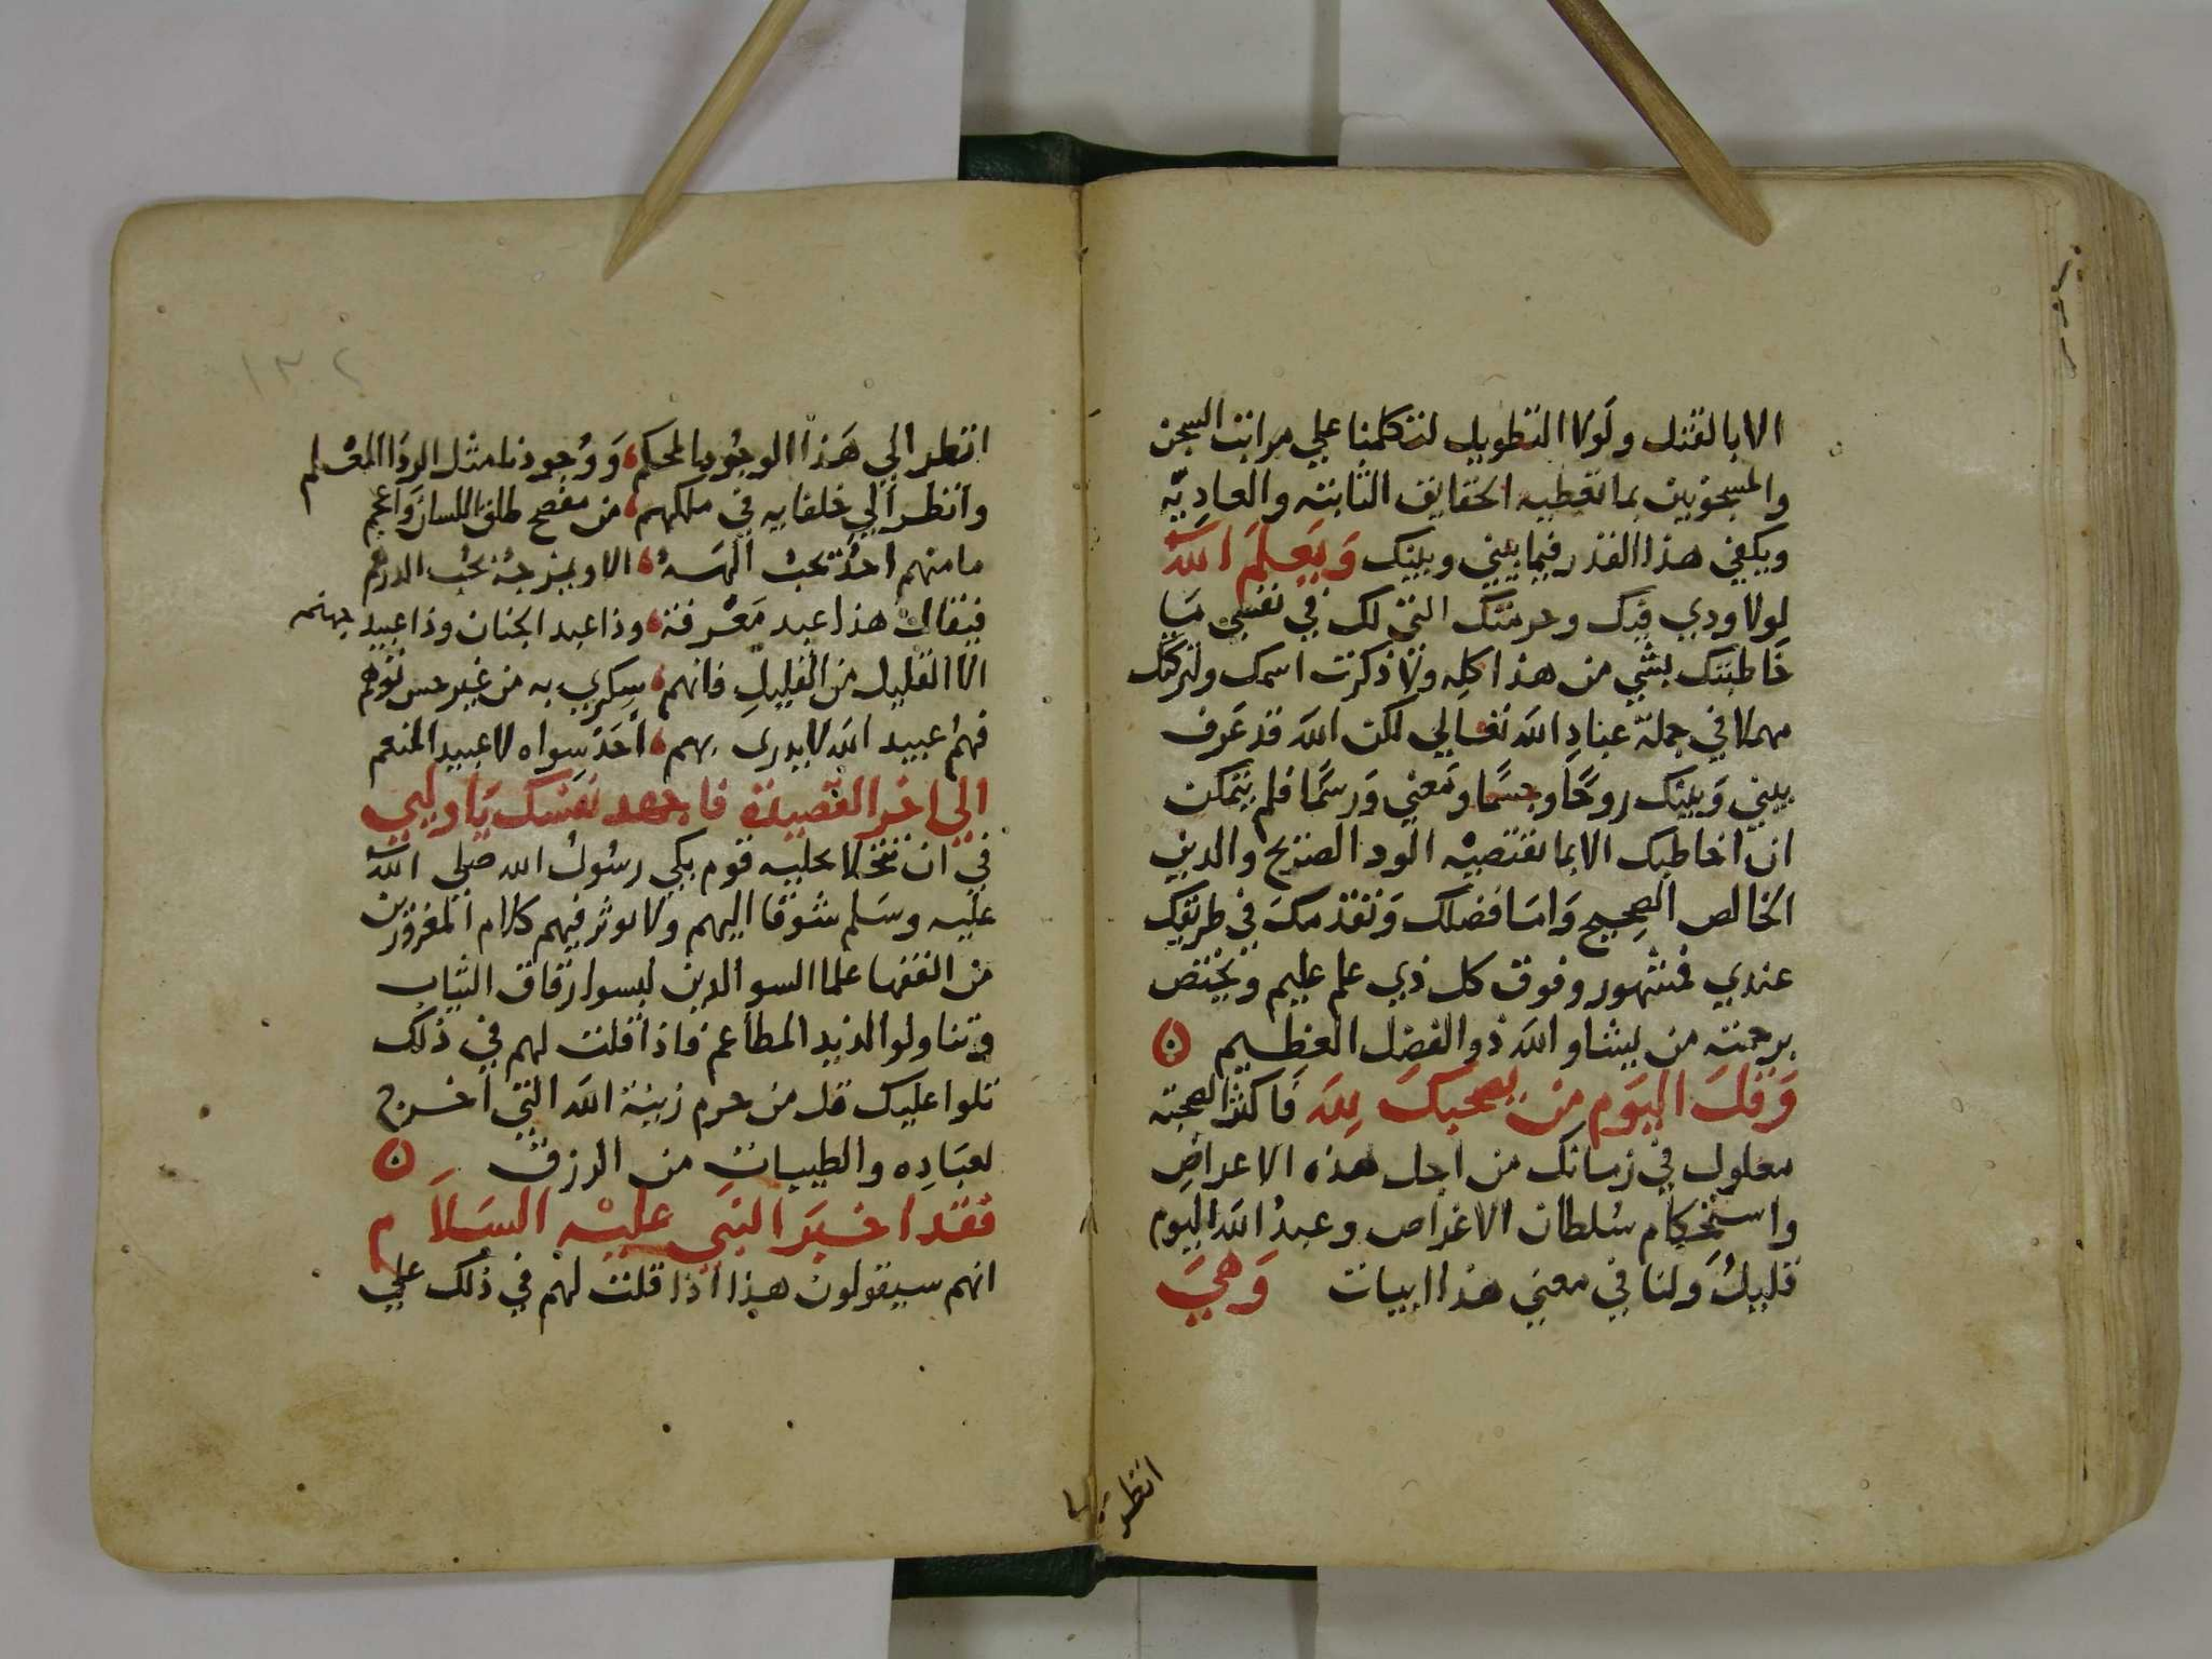 الا بالقتل ولولا التطويل لتكلمنا علي مراتب السجن
والمسجونين بما تعطيه الحقايق الثابته والعاديّه
ويكفي هذا القدر فيما بيني وبينك وَيَعلَمَ اللّه
لولا ودي فيك وحرمتك التي لك في نفسي مَا
خَاطبتك بشي من هذا كله ولا ذكرت اسمك ولتركتك
مهملا في جملة عبادِ اللّه تعالي لكن اللّه قد عَرف
بيني وَبينك روحًا وجسمًا ومَعني وَرسمًا فلم يتمكن
ان اخاطبك الا بما تقتضيْه الود الصريح والدين
الخالص الصحِيح وَامَا فضلك وَتقدمك في طريقك
عندي فمشهور وفوق كل ذي علم عليم ويختص
برحمته من يشا واللّه ذوالفضل العظِيم ۞
وَقلَّ اليَوم من يصحبك لِلّه فَاكثر الصحبة
معلول في زمانك من اجل هذه الاعراضِ
واستحكام سُلطان الاغراض وعبدُ اللّه اليوم
قليلُ وَلنا في معني هذا ابيات وَهيَ
انظر الي
انظر الي هَذا الوجُود المحكم، وَوُجودنا مثل الردَا المعْلم
وانظر الي خلفايه في ملكهم، من مفصح طلق اللسان وَاعجم
ما منهم احدٌ يحبُّ الهَهُ، الا ويمزجهُ بحُبّ الدرهم
فيقال هذا عبد مَعْرفة، وذا عبد الجنان وذا عبيد جهنم
الا القليل من القليلِ فانهم، سكري به من غير حس توهم
فهمُ عبيد اللّه لا يدرى بهم، أحَد سِواه لا عبيد المنعم
الي اخر القصيدة فاجهد نفسَك يَا وليي
في ان تتحلا بحليه قوم بكي رسُولُ الله صلي اللّه
عليه وسَلم شوقا اليهم ولا يوثر فيهم كلام المغرورين
من الفقها علما السو الدين لبسوا رقاق الثياب
وتناولوا لذيد المطاعم فاذا قلت لهم في ذلك
تلوا عليك قل من حرم زينة اللّه التي اخرج
لعبَادِه والطيبات من الرزق ۞
فقد اخبَر النبَي عليْه السَلاَم
انهم سيقولون هذا اذا قلت لهم في ذلك علي